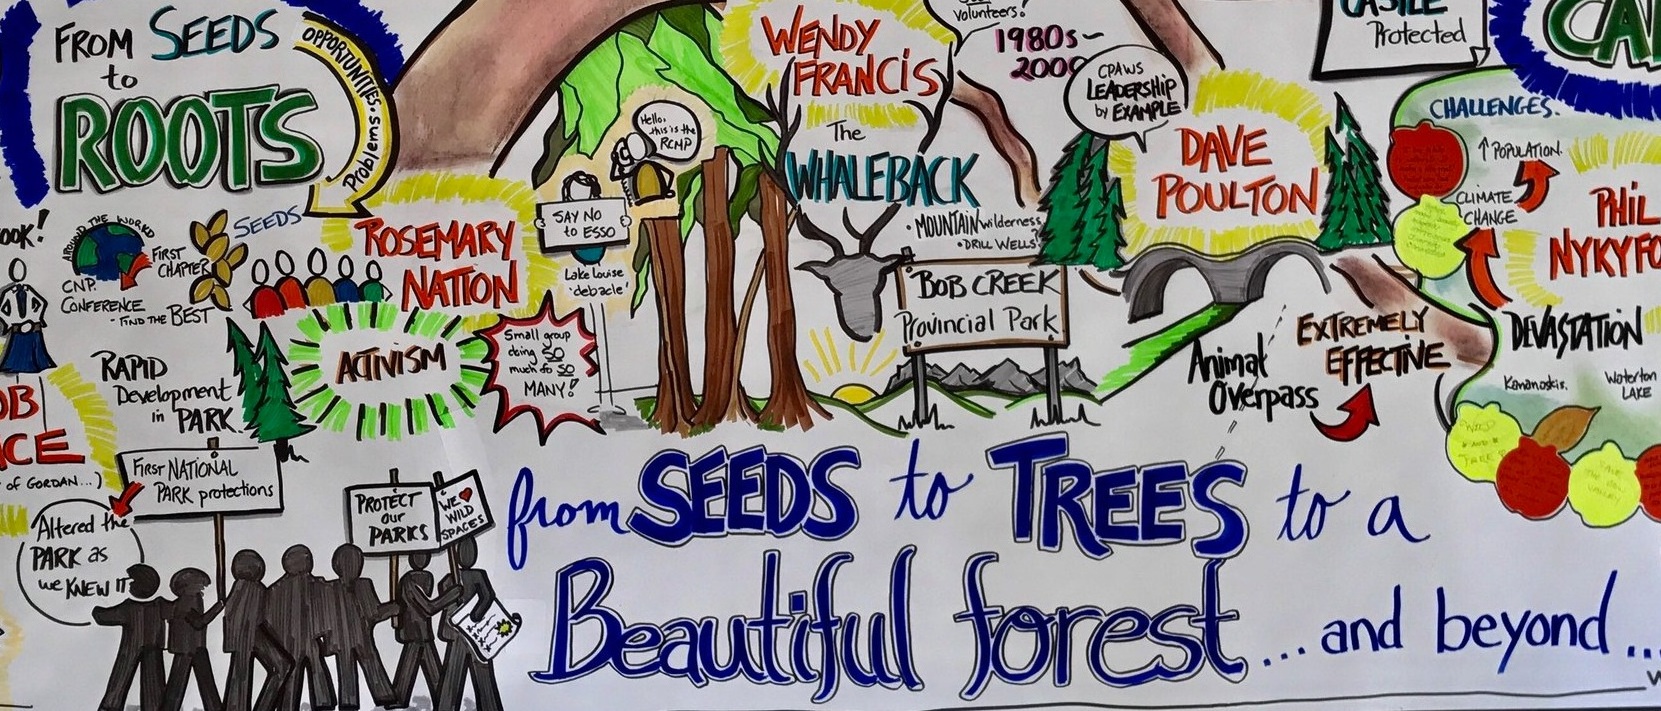 FROM SEEDS
to
ROOTS
OPPORTUNITIES.
Problems
OOK!
AROUND THE WORLD
FIRST
CHAPTER
CNP.
CONFERENCE
- FIND THE BEST
SEEDS
RAPID
Development
in PARK.
OB
CE
of GORDAN...)
FIRST NATIONAL
PARK protections
Altered the
PARK as
we KNEW IT
PROTECT
our
PARKS
WE
WILD
SPACES
ROSEMARY
NATION
ACTIVISM
Small group
doing SO
much fo SO
MANY!
SAY NO
to ESSO
Lake Louise
'debacle'
Hello,
this is the
RCMP
WENDY
FRANCIS
The
WHALEBACK
• MOUNTAIN wilderness
• DRILL WELLS?
BOB CREEK
Provincial Park
volunteers!
1980s-
2000
CPAWS
LEADERSHIP
by EXAMPLE
DAVE
POULTON
Animal
Overpass
EXTREMELY
EFFECTIVE
CASTLE
Protected
CA
CHALLENGES.
↑ POPULATION.
CLIMATE
CHANGE
PHIL
NYKYFO
DEVASTATION
Kananaskis.
Waterton
LAKE
from SEEDS to TREES to a
Beautiful forest... and beyond...